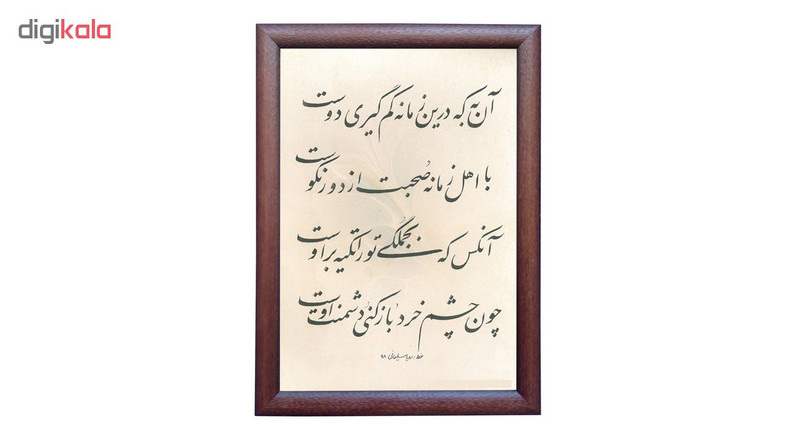 digikala
آن به که درین زمانه کم گیری دوست
با اهل زمانه صُحبت از دور نکوست
آنکس که بجُملگی تو را تکیه بر اوست
چون چشم خرد باز کنی دشمنت اوست
خط: رویا سلیمانی ۹۸